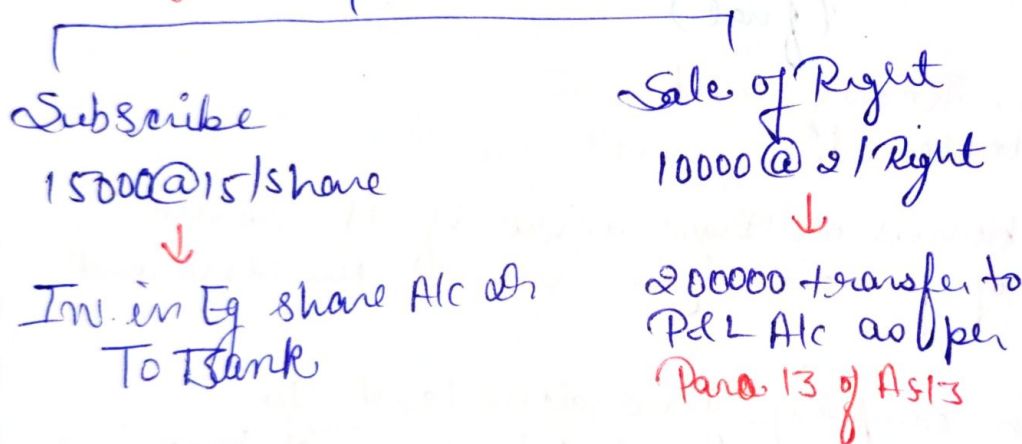 Subscribe
15000@15/share
↓
Inv. in Eq share A/c dr
To Bank
Sale of Right
10000@2/Right
↓
200000 transfer to
P&L A/c as per
Para 13 of AS13